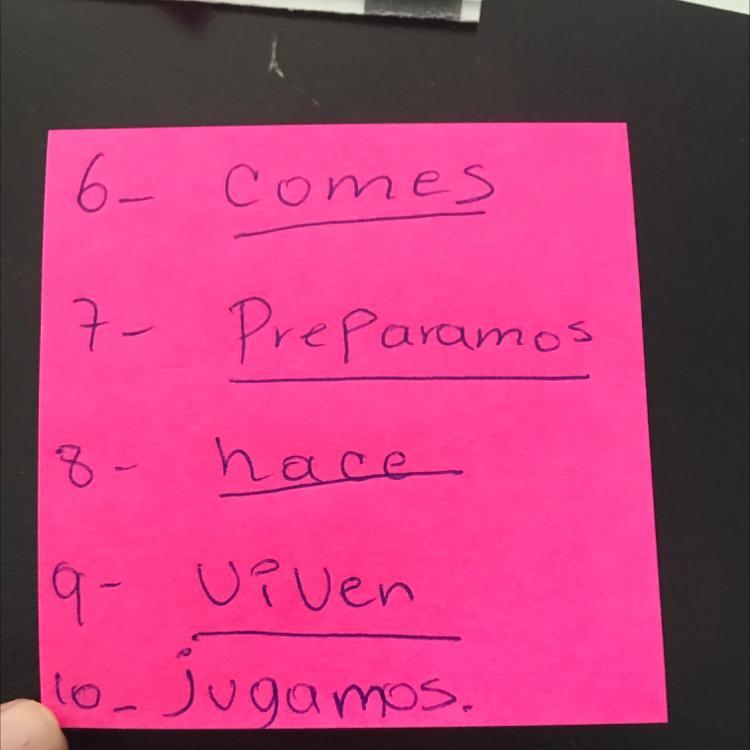 6- Comes
7- Preparamos
8- hace
9- Viven
10- jugamos.